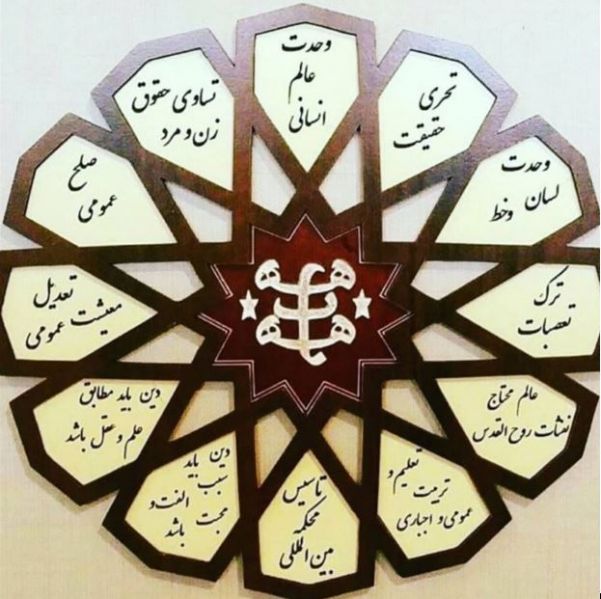 وحدت
عالم
انسانی
تحری
حقیقت
وحدت
لسان
وخط
ترک
تعصبات
عالم محتاج
نفثات روح القدس
تعلیم و
تربیت
عمومی و اجباری
تاسیس
محکمه
بین المللی
دین باید
سبب
الفت و
محبت
باشد
دین باید مطابق
علم و عقل باشد
تعدیل
معیشت عمومی
صلح
عمومی
تساوی حقوق
زن و مرد